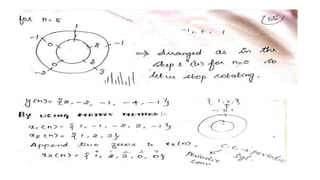 for n=5
-1, 0, 1
55
1
-1
-1
0
2
0
3
1
-2
2
3
=> arranged as in the
step 1 (b) for n=0 so
let us stop rotating.
y(n)={2, -2, -1, -4, -1}
{1, 2, 3}
By USING MATRIX METHOD:-
x₁(n)={1, -1, -2, 3, -1}
x₂(n)={1, 2, 3}
Append two zeros to x₂(n),
x₂(n)={1, 2, 3, 0, 0}
C.C → periodic
periodic
Sgl
conv